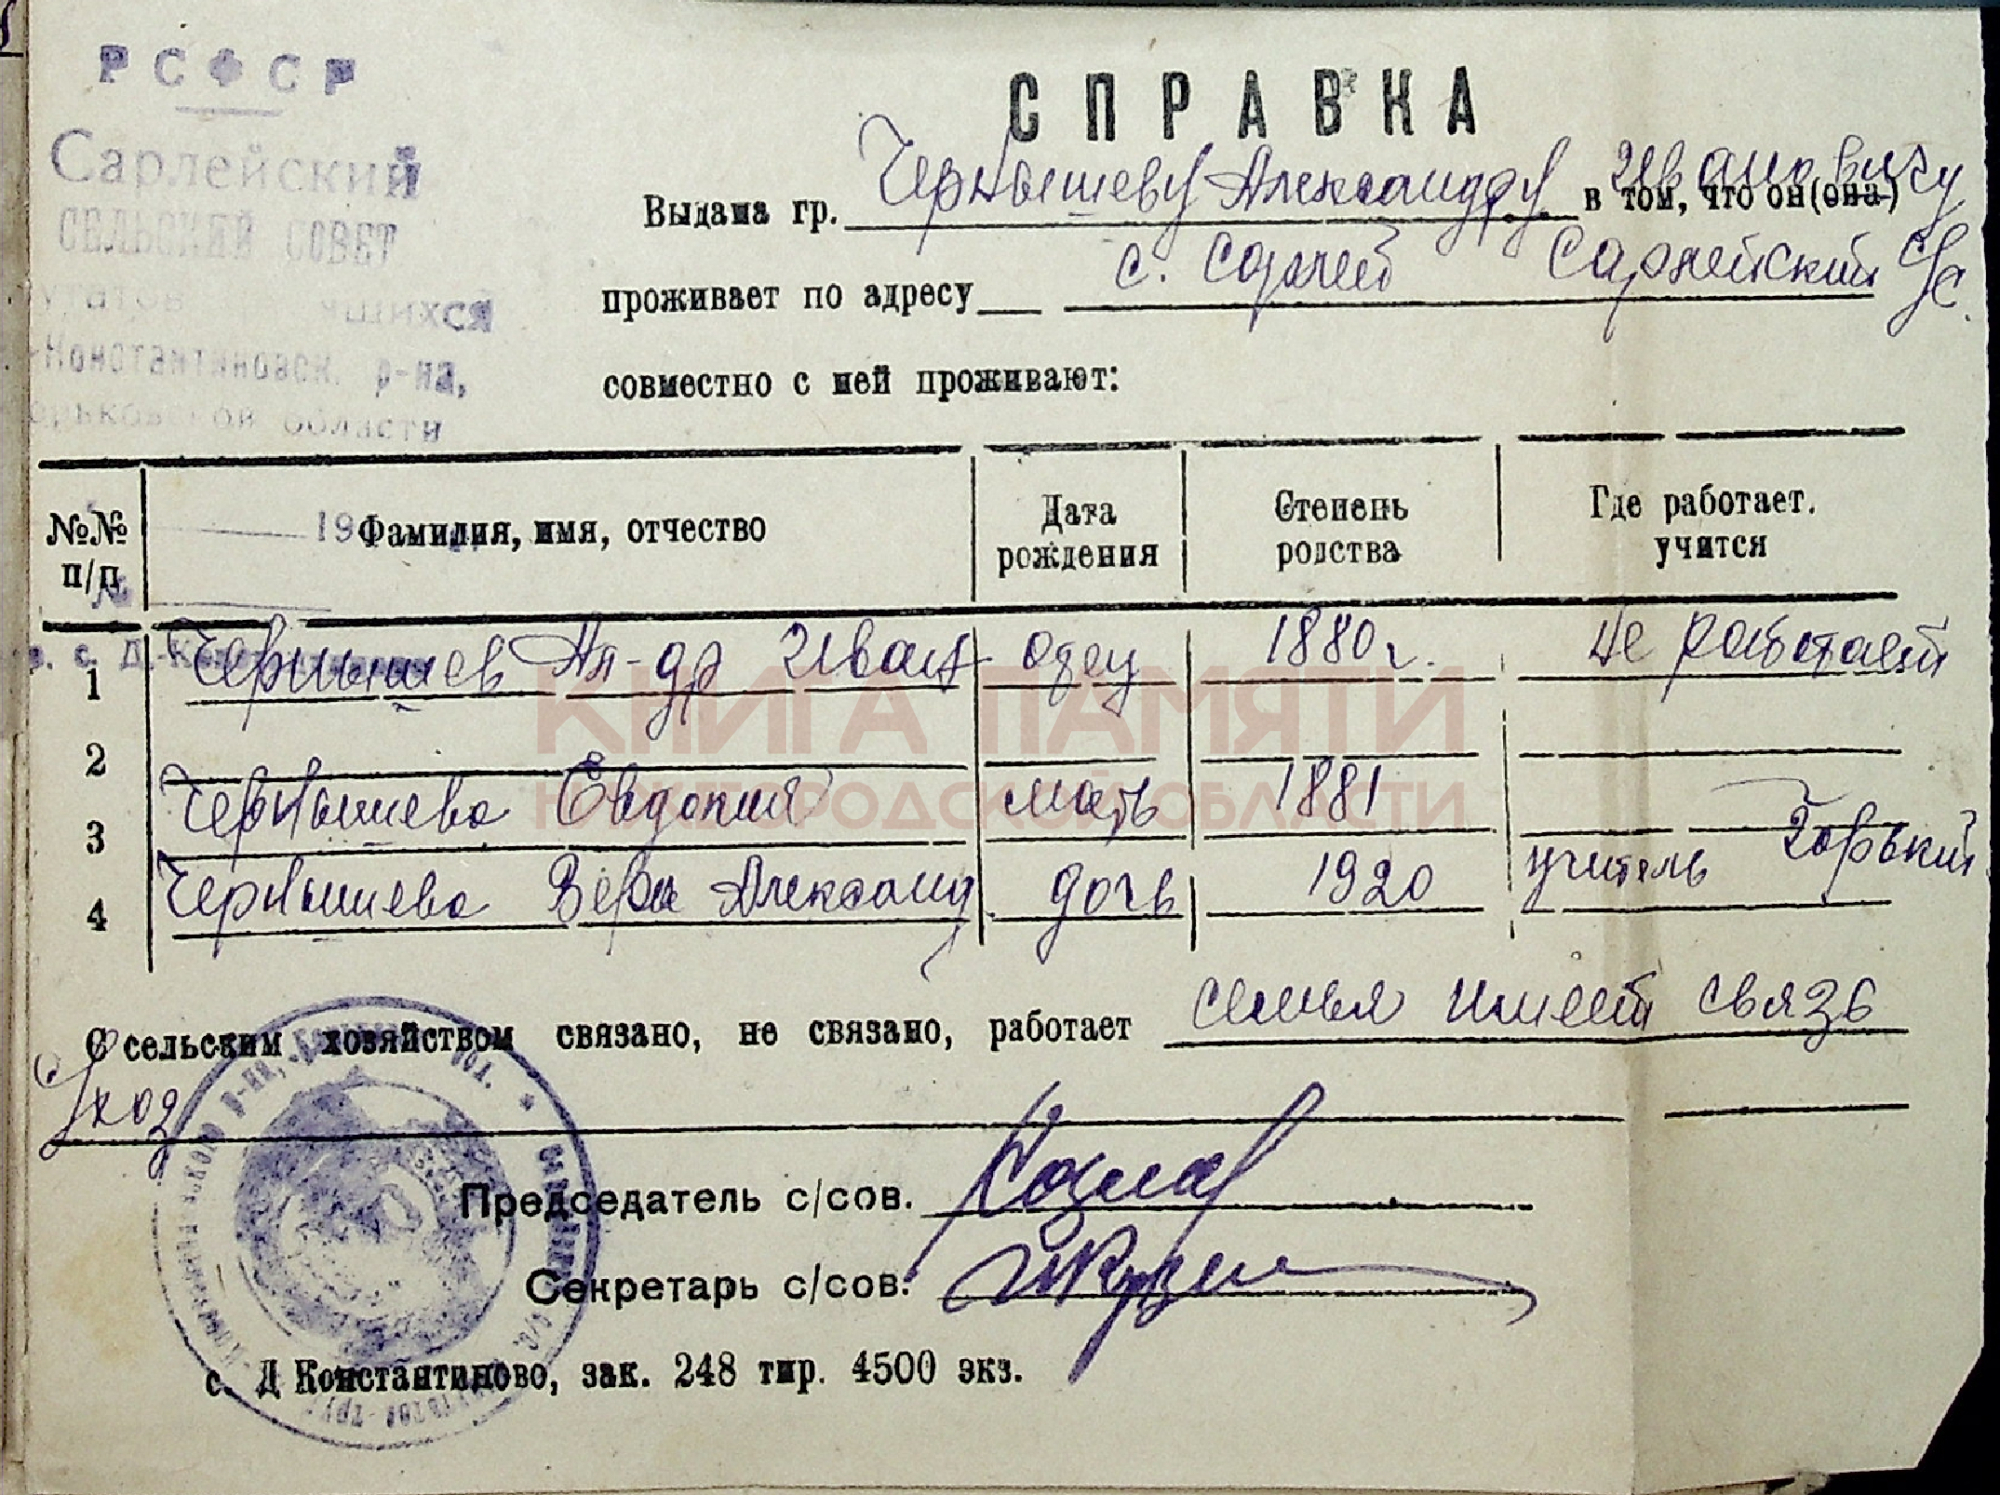 РСФСР
Сарлейский
СЕЛЬСКИЙ СОВЕТ
-Константиновск. р-на,
области
СПРАВКА
Выдана гр. Чернышеву Александру Ивановичу в том, что он(она)
проживает по адресу с. Сарлей Сарлейский с/с.
совместно с ней проживают:
№№ п/п
19
Фамилия, имя, отчество
Дата рождения
Степень родства
Где работает. учится
1 Чернышев Ал-др Иван отец 1880 г. Не работает
2
3 Чернышева Евдокия мать 1881
4 Чернышева Вера Александ. дочь 1920 учитель Горький
С сельским хозяйством связано, не связано, работает семья имеет связь
с/хоз
Председатель с/сов.
Секретарь с/сов.
с. Д Константиново, зак. 248 тир. 4500 экз.
КНИГА ПАМЯТИ
НИЖЕГОРОДСКОЙ ОБЛАСТИ